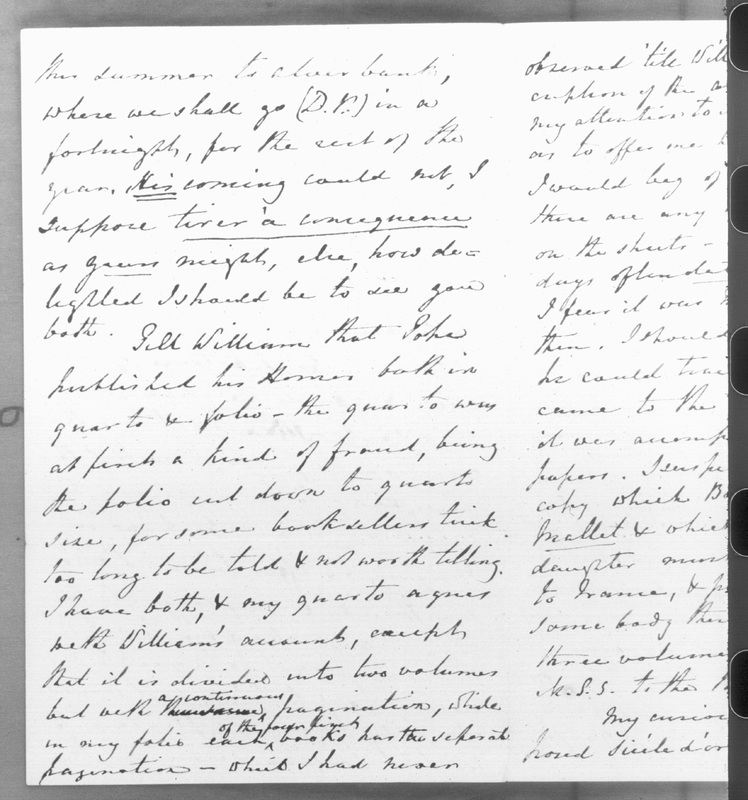 this summer to Alverbank,
where we shall go (D.V.) in a
fortnight, for the rest of the
year. His coming could not, I
suppose tirer à consequence
as yours might, else, how de=
lighted I should be to see you
both. Tell William that Pope
published his Homer both in
quarto & folio - the quarto was
at first a kind of fraud, being
the folio cut down to quarto
size, for some booksellers trick
too long to be told & not worth telling.
I have both, & my quarto agrees
with William's account, except
that it is divided into two volumes
but with a continuous pagination, while
in my folio each of the four first books has the separate
pagination - which I had never
observed 'till Will
cription of the
my attention to
as to offer me
I would beg of
there are any
on the sheets -
days often
I fear it was
then. I should
he could
came to the
it was
papers. I
copy which
Mallet & which
daughter
to France, &
some body
three volume
M.S.S. to the
My